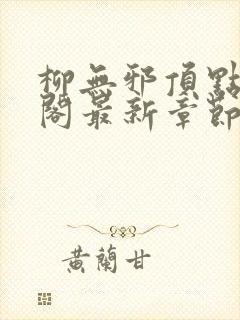 柳無邪頂點
閣最新章節
黃蘭甘